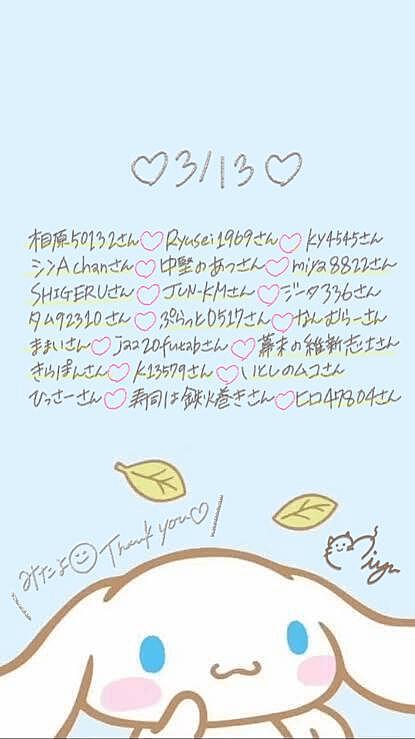 ♡3/13♡
相原50132さん♡Ryusei1969さん♡KY4545さん
シンAchanさん♡中堅のあっさん♡miya8822さん
SHIGERUさん♡JUN-KMさん♡ジータ336さん
タム92310さん♡ぷらっと0517さん♡なんむらーさん
ままいさん♡jazz0fukabさん♡幕末の維新志士さん
きらぽんさん♡K13579さん♡いとしのムコさん
ひっさーさん♡寿司は鉄火巻きさん♡ヒロ47804さん
みたよ☺Thank you♡
Miyu